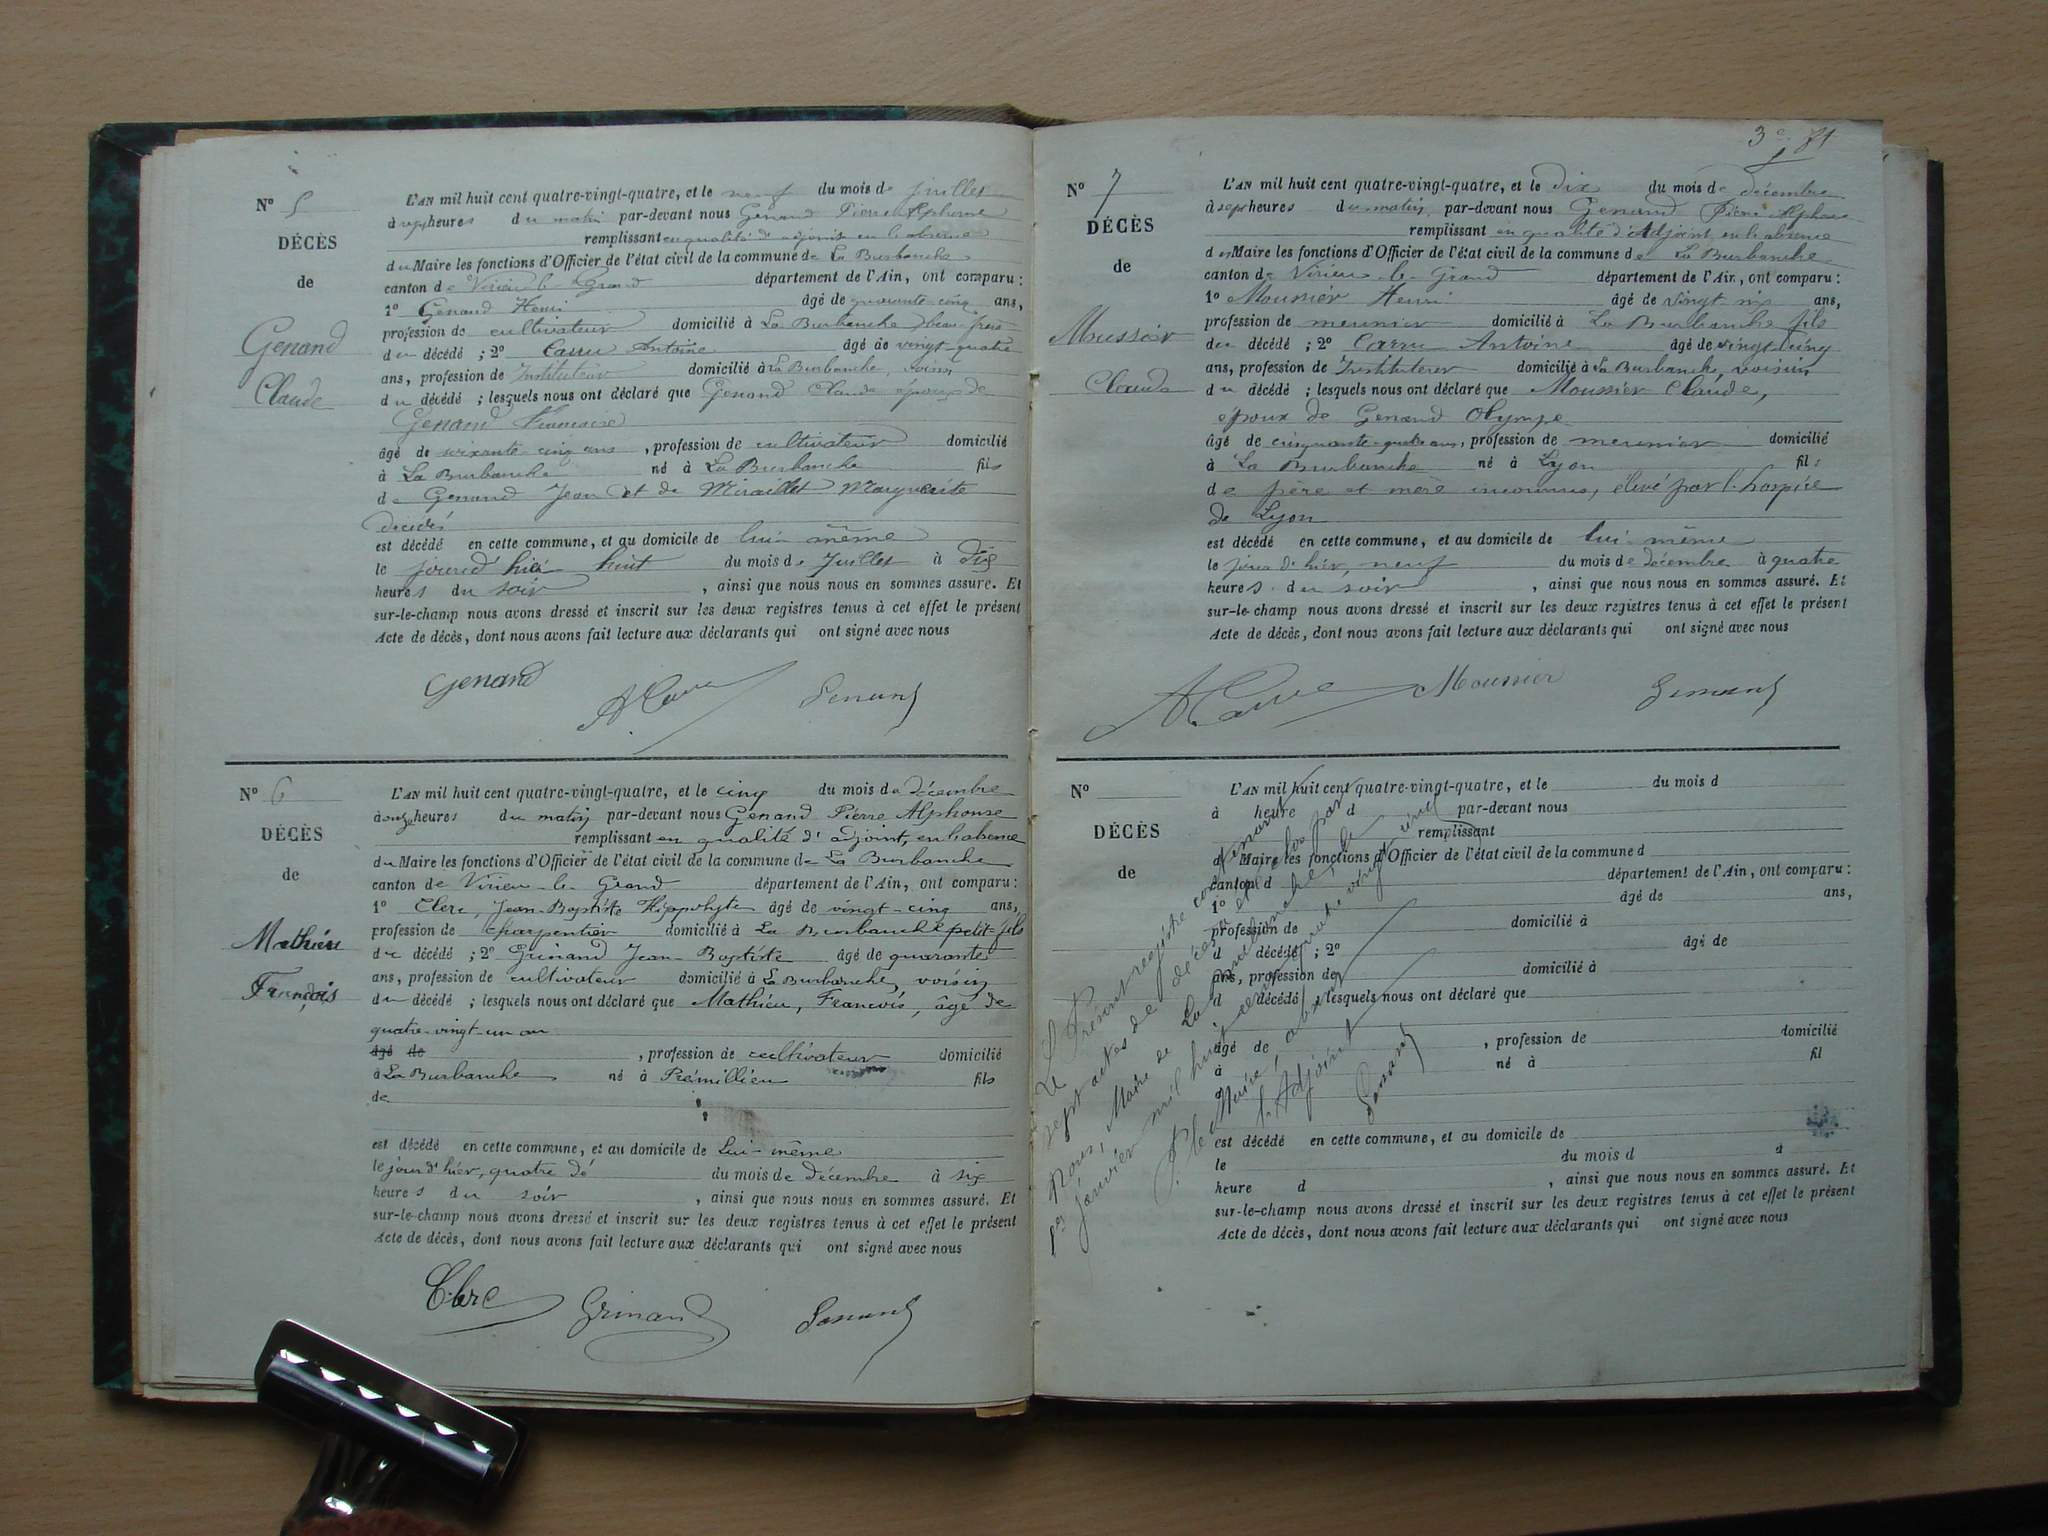 N° 5
DÉCÈS
de
Genand
Claude
L'AN mil huit cent quatre-vingt-quatre, et le neuf du mois de juillet
à sept heures du matin par-devant nous Genand Pierre Alphonse
remplissant en qualité d'adjoint en l'absence
du Maire les fonctions d'Officier de l'état civil de la commune de La Burbanche
canton de Virieu-le-Grand département de l'Ain, ont comparu :
1° Genand Henri âgé de quarante-cinq ans,
profession de cultivateur domicilié à La Burbanche, beau-frère
du décédé ; 2° Carru Antoine âgé de vingt-quatre
ans, profession de Instituteur domicilié à La Burbanche, voisin
du décédé ; lesquels nous ont déclaré que Genand Claude époux de
Genand Francoise
âgé de soixante-cinq ans, profession de cultivateur domicilié
à La Burbanche né à La Burbanche fils
de Genand Jean et de Miraillet Marguerite
décédés
est décédé en cette commune, et au domicile de lui-même
le jourd'hier huit du mois de Juillet à dix
heures du soir, ainsi que nous nous en sommes assuré. Et
sur-le-champ nous avons dressé et inscrit sur les deux registres tenus à cet effet le présent
Acte de décès, dont nous avons fait lecture aux déclarants qui ont signé avec nous
Genand A. Carru Genand
N° 6
DÉCÈS
de
Mathieu
François
L'AN mil huit cent quatre-vingt-quatre, et le cinq du mois de décembre
à onze heures du matin par-devant nous Genand Pierre Alphonse
remplissant en qualité d'adjoint, en l'absence
du Maire les fonctions d'Officier de l'état civil de la commune de La Burbanche
canton de Virieu-le-Grand département de l'Ain, ont comparu :
1° Clerc, Jean-Baptiste Hippolyte âgé de vingt-cinq ans,
profession de charpentier domicilié à La Burbanche petit-fils
du décédé ; 2° Grinand Jean-Baptiste âgé de quarante
ans, profession de cultivateur domicilié à La Burbanche, voisin
du décédé ; lesquels nous ont déclaré que Mathieu, François, âgé de
quatre-vingt-un an
âgé de , profession de cultivateur domicilié
à La Burbanche né à Prémillieu fils
de
est décédé en cette commune, et au domicile de Lui-même
le jourd'hier, quatre dé du mois de décembre à six
heures du soir, ainsi que nous nous en sommes assuré. Et
sur-le-champ nous avons dressé et inscrit sur les deux registres tenus à cet effet le présent
Acte de décès, dont nous avons fait lecture aux déclarants qui ont signé avec nous
Clerc Grinand Genand
81
N° 7
DÉCÈS
de
Moussier
Claude
L'AN mil huit cent quatre-vingt-quatre, et le Dix du mois de décembre
à sept heures du matin par-devant nous Genand Pierre Alphonse
remplissant en qualité d'Adjoint, en l'absence
du Maire les fonctions d'Officier de l'état civil de la commune de La Burbanche
canton de Virieu-le-Grand département de l'Ain, ont comparu :
1° Mounier Henri âgé de vingt-six ans,
profession de meunier domicilié à La Burbanche fils
du décédé ; 2° Carru Antoine âgé de vingt-cinq
ans, profession de Instituteur domicilié à La Burbanche, voisin
du décédé ; lesquels nous ont déclaré que Mounier Claude,
époux de Genand Olympe
âgé de cinquante-quatre ans, profession de meunier domicilié
à La Burbanche né à Lyon fils
de père et mère inconnus, élevé par l'hospice
de Lyon
est décédé en cette commune, et au domicile de lui-même
le jour d'hier, neuf du mois de décembre à quatre
heures du soir, ainsi que nous nous en sommes assuré. Et
sur-le-champ nous avons dressé et inscrit sur les deux registres tenus à cet effet le présent
Acte de décès, dont nous avons fait lecture aux déclarants qui ont signé avec nous
A. Carru Mounier Genand
N°
DÉCÈS
de
L'AN mil huit cent quatre-vingt-quatre, et le du mois d
à heure d par-devant nous
remplissant
d Maire les fonctions d'Officier de l'état civil de la commune d
canton d département de l'Ain, ont comparu :
1° âgé de ans,
profession de domicilié à
d décédé ; 2° âgé de
ans, profession de domicilié à
d décédé ; lesquels nous ont déclaré que
âgé de , profession de domicilié
à né à fil
d
est décédé en cette commune, et au domicile de
le du mois d à
heure d , ainsi que nous nous en sommes assuré. Et
sur-le-champ nous avons dressé et inscrit sur les deux registres tenus à cet effet le présent
Acte de décès, dont nous avons fait lecture aux déclarants qui ont signé avec nous
Le Présent registre contenant
sept actes de décès a été clos par
Nous, Maire de La Burbanche, le
1er janvier mil huit cent quatre vingt cinq
P. le Maire, absent
l'Adjoint
Genand